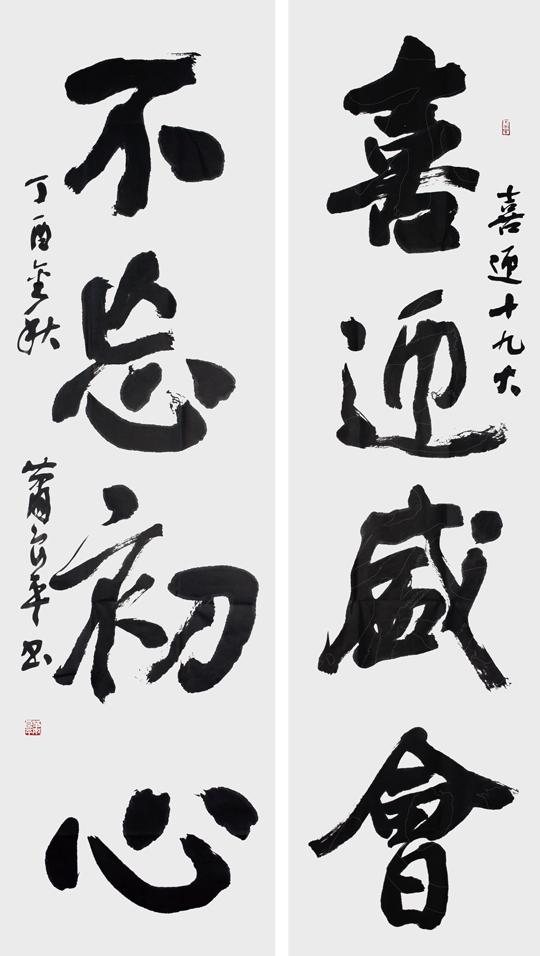 喜迎十九大
喜迎盛會
不忘初心
丁酉金秋
蕭
平書